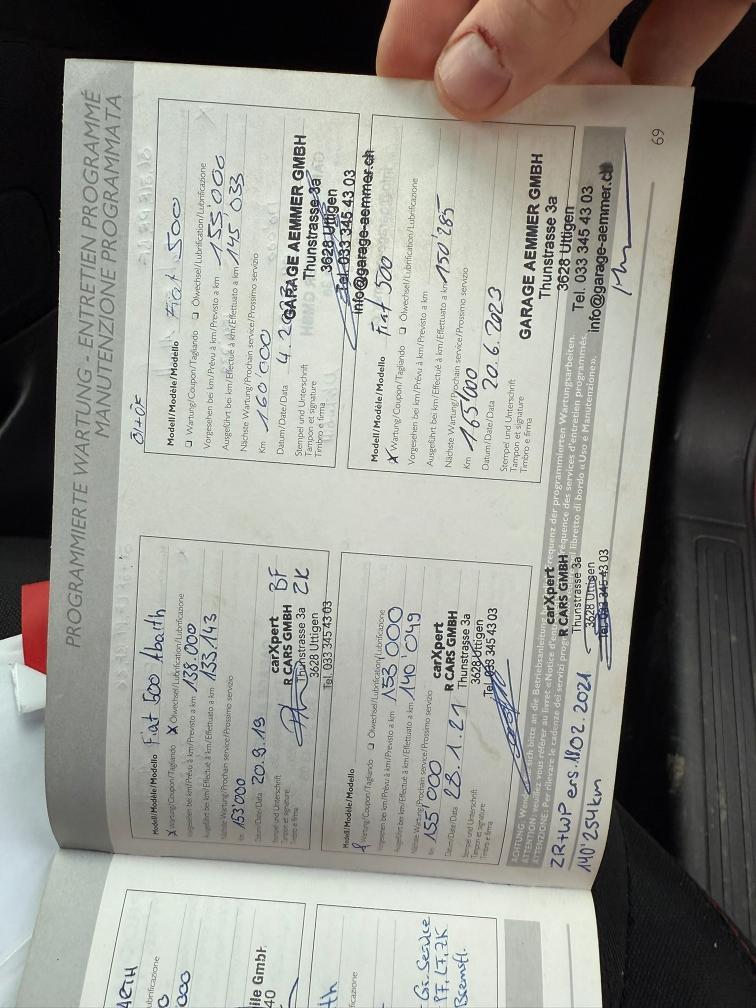 PROGRAMMIERTE WARTUNG - ENTRETIEN PROGRAMMÉ
MANUTENZIONE PROGRAMMATA
Modell/Modèle/Modello Fiat 500 Abarth
X Wartung/Coupon/Tagliando X Ölwechsel/Lubrification/Lubrificazione
Vorgesehen bei km/Prévu à km/Previsto a km 138.000
Ausgeführt bei km/Effectué à km/Effettuato a km 133.143
Nächste Wartung/Prochain service/Prossimo servizio
Km 153000
Datum/Date/Data 20.9.19
Stempel und Unterschrift
Tampon et signature
Timbro e firma
carXpert
R CARS GMBH
Thunstrasse 3a
3628 Uttigen
Tel. 033 345 43 03
BF
ZK
Modell/Modèle/Modello
Wartung/Coupon/Tagliando ❑ Ölwechsel/Lubrification/Lubrificazione
Vorgesehen bei km/Prévu à km/Previsto a km 153 000
Ausgeführt bei km/Effectué à km/Effettuato a km 140 049
Nächste Wartung/Prochain service/Prossimo servizio
Km 155'000
Datum/Date/Data 28.1.21
Stempel und Unterschrift
Tampon et signature
Timbro e firma
carXpert
R CARS GMBH
Thunstrasse 3a
3628 Uttigen
Tel. 033 345 43 03
Modell/Modèle/Modello Fiat 500
❑ Wartung/Coupon/Tagliando ❑ Ölwechsel/Lubrification/Lubrificazione
Vorgesehen bei km/Prévu à km/Previsto a km 155'000
Ausgeführt bei km/Effectué à km/Effettuato a km 145'033
Nächste Wartung/Prochain service/Prossimo servizio
Km 160'000
Datum/Date/Data 4.
Stempel und Unterschrift
Tampon et signature
Timbro e firma
GARAGE AEMMER GMBH
Thunstrasse 3a
3628 Uttigen
Tel. 033 345 43 03
info@garage-aemmer.ch
Modell/Modèle/Modello Fiat 500
X Wartung/Coupon/Tagliando ❑ Ölwechsel/Lubrification/Lubrificazione
Vorgesehen bei km/Prévu à km/Previsto a km
Ausgeführt bei km/Effectué à km/Effettuato a km 150'285
Nächste Wartung/Prochain service/Prossimo servizio
Km 165'000
Datum/Date/Data 20.6.2023
Stempel und Unterschrift
Tampon et signature
Timbro e firma
GARAGE AEMMER GMBH
Thunstrasse 3a
3628 Uttigen
Tel. 033 345 43 03
info@garage-aemmer.ch
ZR+WP ers. 18.02.2021
140'254km
carXpert
R CARS GMBH
Thunstrasse 3a
3628 Uttigen
Tel. 033 345 43 03
69